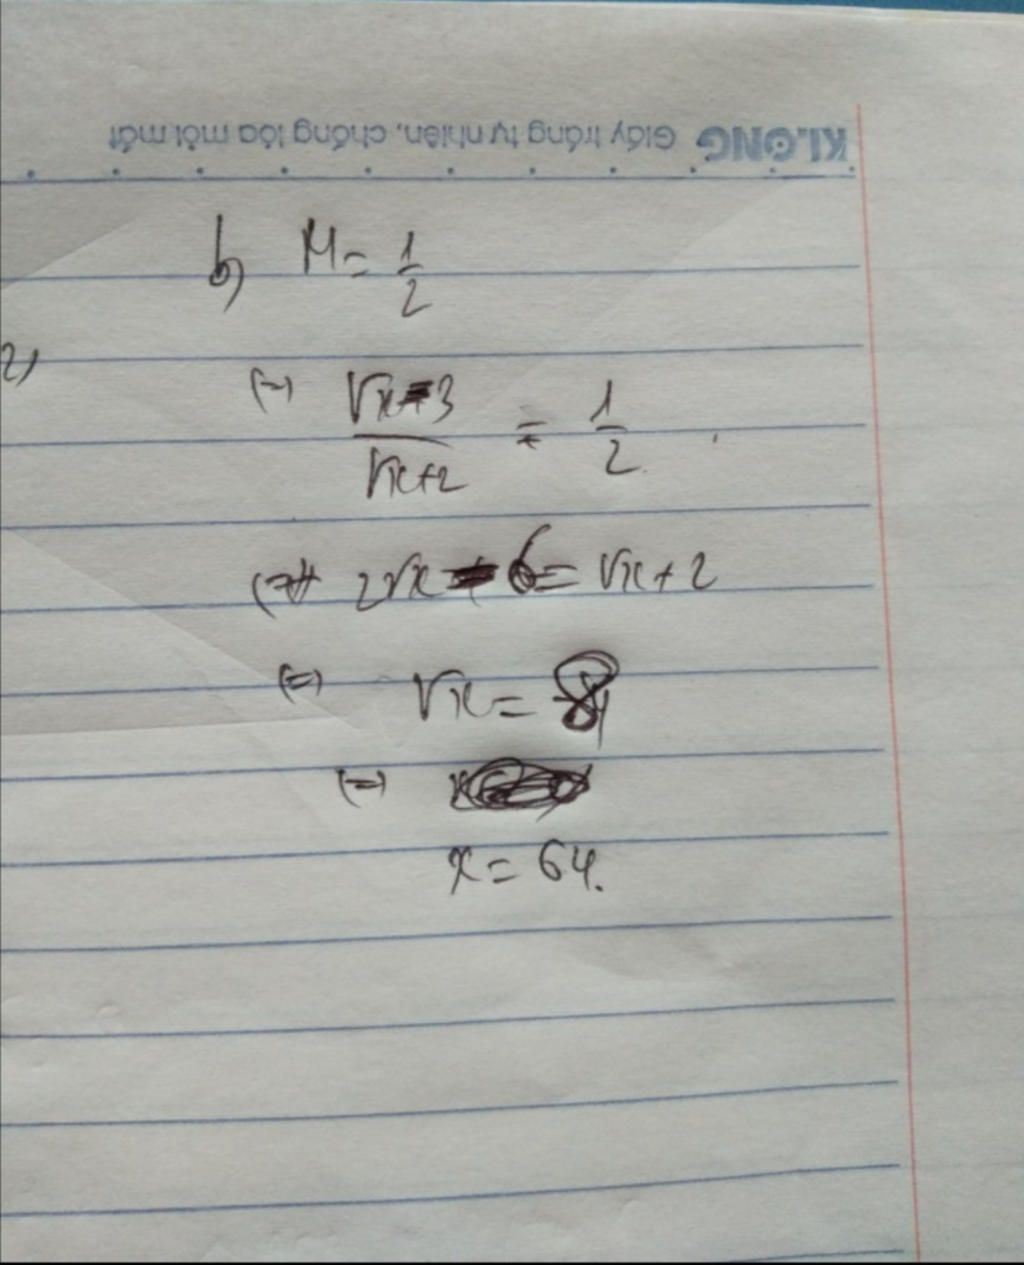 KLONG Giấy trắng tự nhiên, chống lóa mỏi mắt
b) M = 1/2
2)
(=) √x - 3 / √x + 2 = 1/2
(=) 2√x - 6 = √x + 2
(=) √x = 8
(=)
x = 64.